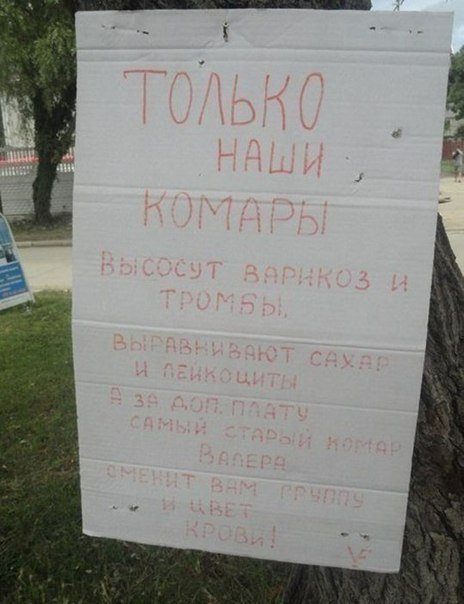 ТОЛЬКО
НАШИ
КОМАРЫ
ВЫСОСУТ ВАРИКОЗ И
ТРОМБЫ,
ВЫРАВНИВАЮТ САХАР
И ЛЕЙКОЦИТЫ
А ЗА ДОП. ПЛАТУ
САМЫЙ СТАРЫЙ КОМАР
ВАЛЕРА
СМЕНИТ ВАМ ГРУППУ
И ЦВЕТ
КРОВИ!